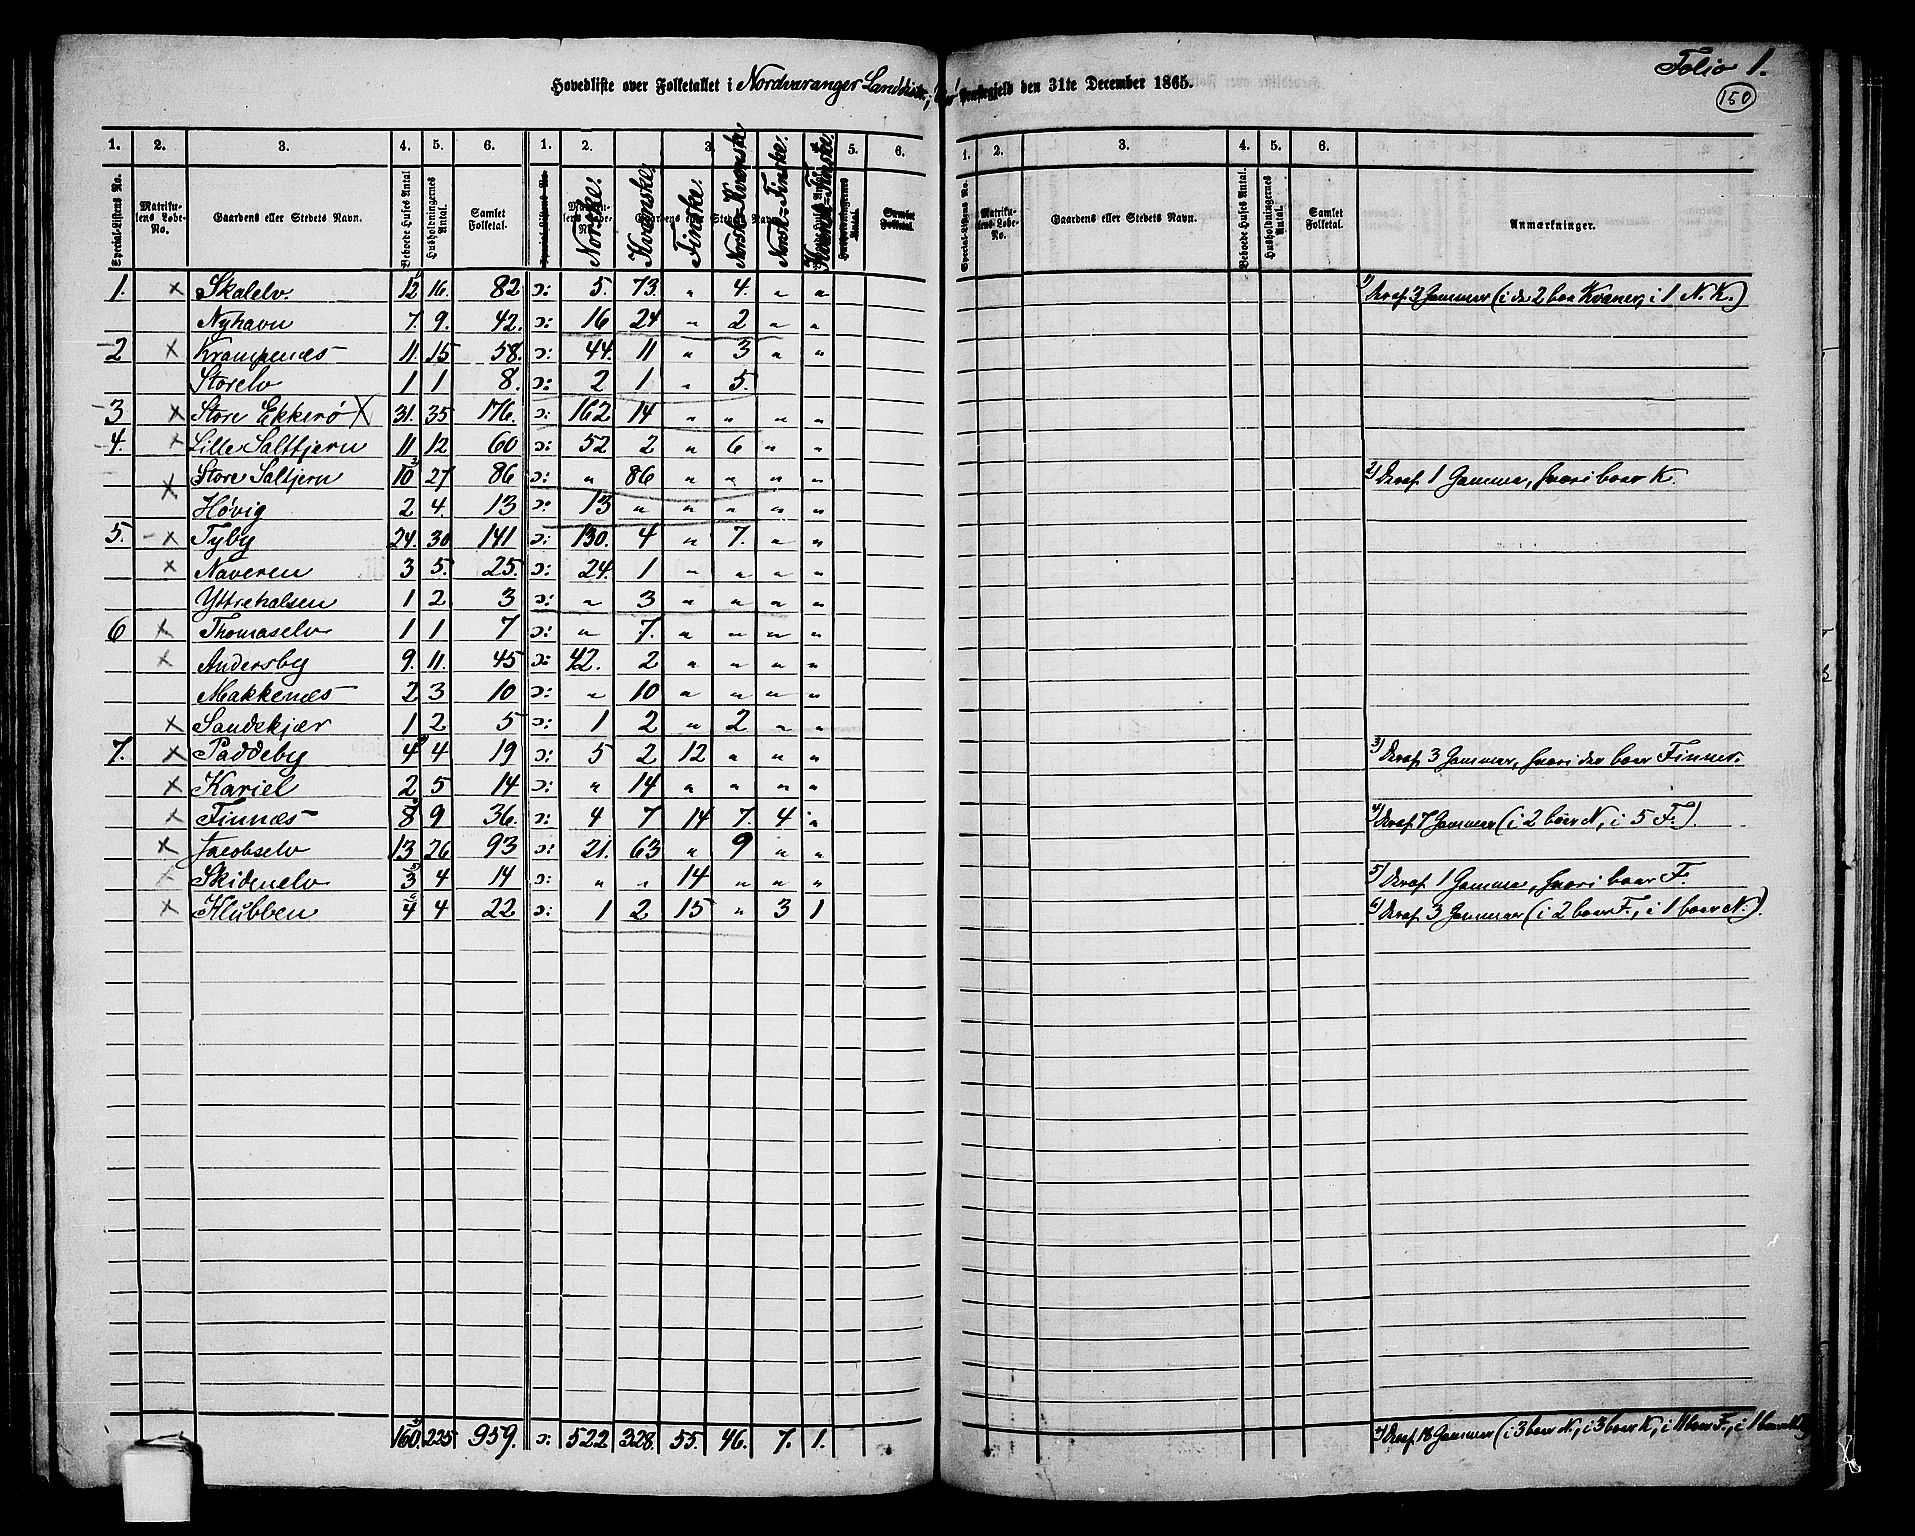 Folio 1.
150
Hovedliste over Folketallet i Nordvaranger Landdistr., Præstegjeld den 31te December 1865.
1. 2. 3. 4. 5. 6. 1. 2. 3. 5. 6. 1. 2. 3. 4. 5. 6.
Special-Listens No. Matrikulens Løbe-No. Gaardens eller Stedets Navn. Beboede Huses Antal Husholdningernes Antal. Samlet Folketal. Norske. Kvænske. Finske. Norsk-Kvænske Norsk-Finske. Kvænsk-Finske. Husholdningernes Antal. Samlet Folketal. Special-Listens No. Matrikulens Løbe-No. Gaardens eller Stedets Navn. Beboede Huses Antal. Husholdningernes Antal. Samlet Folketal. Anmærkninger.
1. x Skalelv. 12 16. 82 ɔ: 5. 73. " 4. " " 1) Deraf 3 Gammer (i de 2 boe Kvæner, i 1 N. K.)
Nyhavn 7. 9. 42. ɔ: 16 24 " 2 " "
2 x Krampenæs 11. 15 58. ɔ: 44. 11 " 3 " "
Storelv 1 1 8. ɔ: 2 1 " 5.
3 x Store Ekkerø X 31. 35 176. ɔ: 162 14 " " " "
4. x Lille Saltfjern 11 12 60 ɔ: 52 2 " 6 " "
x Store Saltjern 10 27 86 ɔ: " 86 " " " " 2) Deraf 1 Gamme, hvori boer K.
Høvig 2 4. 13 ɔ: 13 " " " " "
5. x Tyby 24. 30 141 ɔ: 130. 4 " 7. " "
x Naveren 3 5. 25. ɔ: 24. 1 " " " "
Yttrehalsen 1 2 3 ɔ: " 3 " " " "
6 x Thomaselv 1 1 7 ɔ: " 7. " " " "
x Andersby 9. 11. 45 ɔ: 42. 2 " " " "
Makkenæs 2 3 10 ɔ: " 10 " " " "
x Sandskjær 1 2 5 ɔ: 1 2 " 2 " "
7. x Paddeby 4 4 19 ɔ: 5 2 12 " " " 3) Deraf 3 Gammer, hvori der boer Finner.
x Kariel 2 5 14 ɔ: " 14 " " " "
x Finnæs 8 9 36. ɔ: 4 7 14 7. 4 " 4) Deraf 7 Gammer (i 2 boer N, i 5 F.).
x Jacobselv 13 26 93 ɔ: 21. 63 " 9 " "
x Skidenelv 3 4 14 ɔ: " " 14 " " " 5) Deraf 1 Gamme, hvori boer F.
x Klubben 4 4 22 ɔ: 1 2 15 " 3 1 6) Deraf 3 Gammer (i 2 boer F., i 1 boer N.).
160. 225 959. ɔ: 522 328. 55. 46. 7. 1. Deraf 18 Gammer (i 3 boer N., i 3 boer K, i 11 boer F., i 1